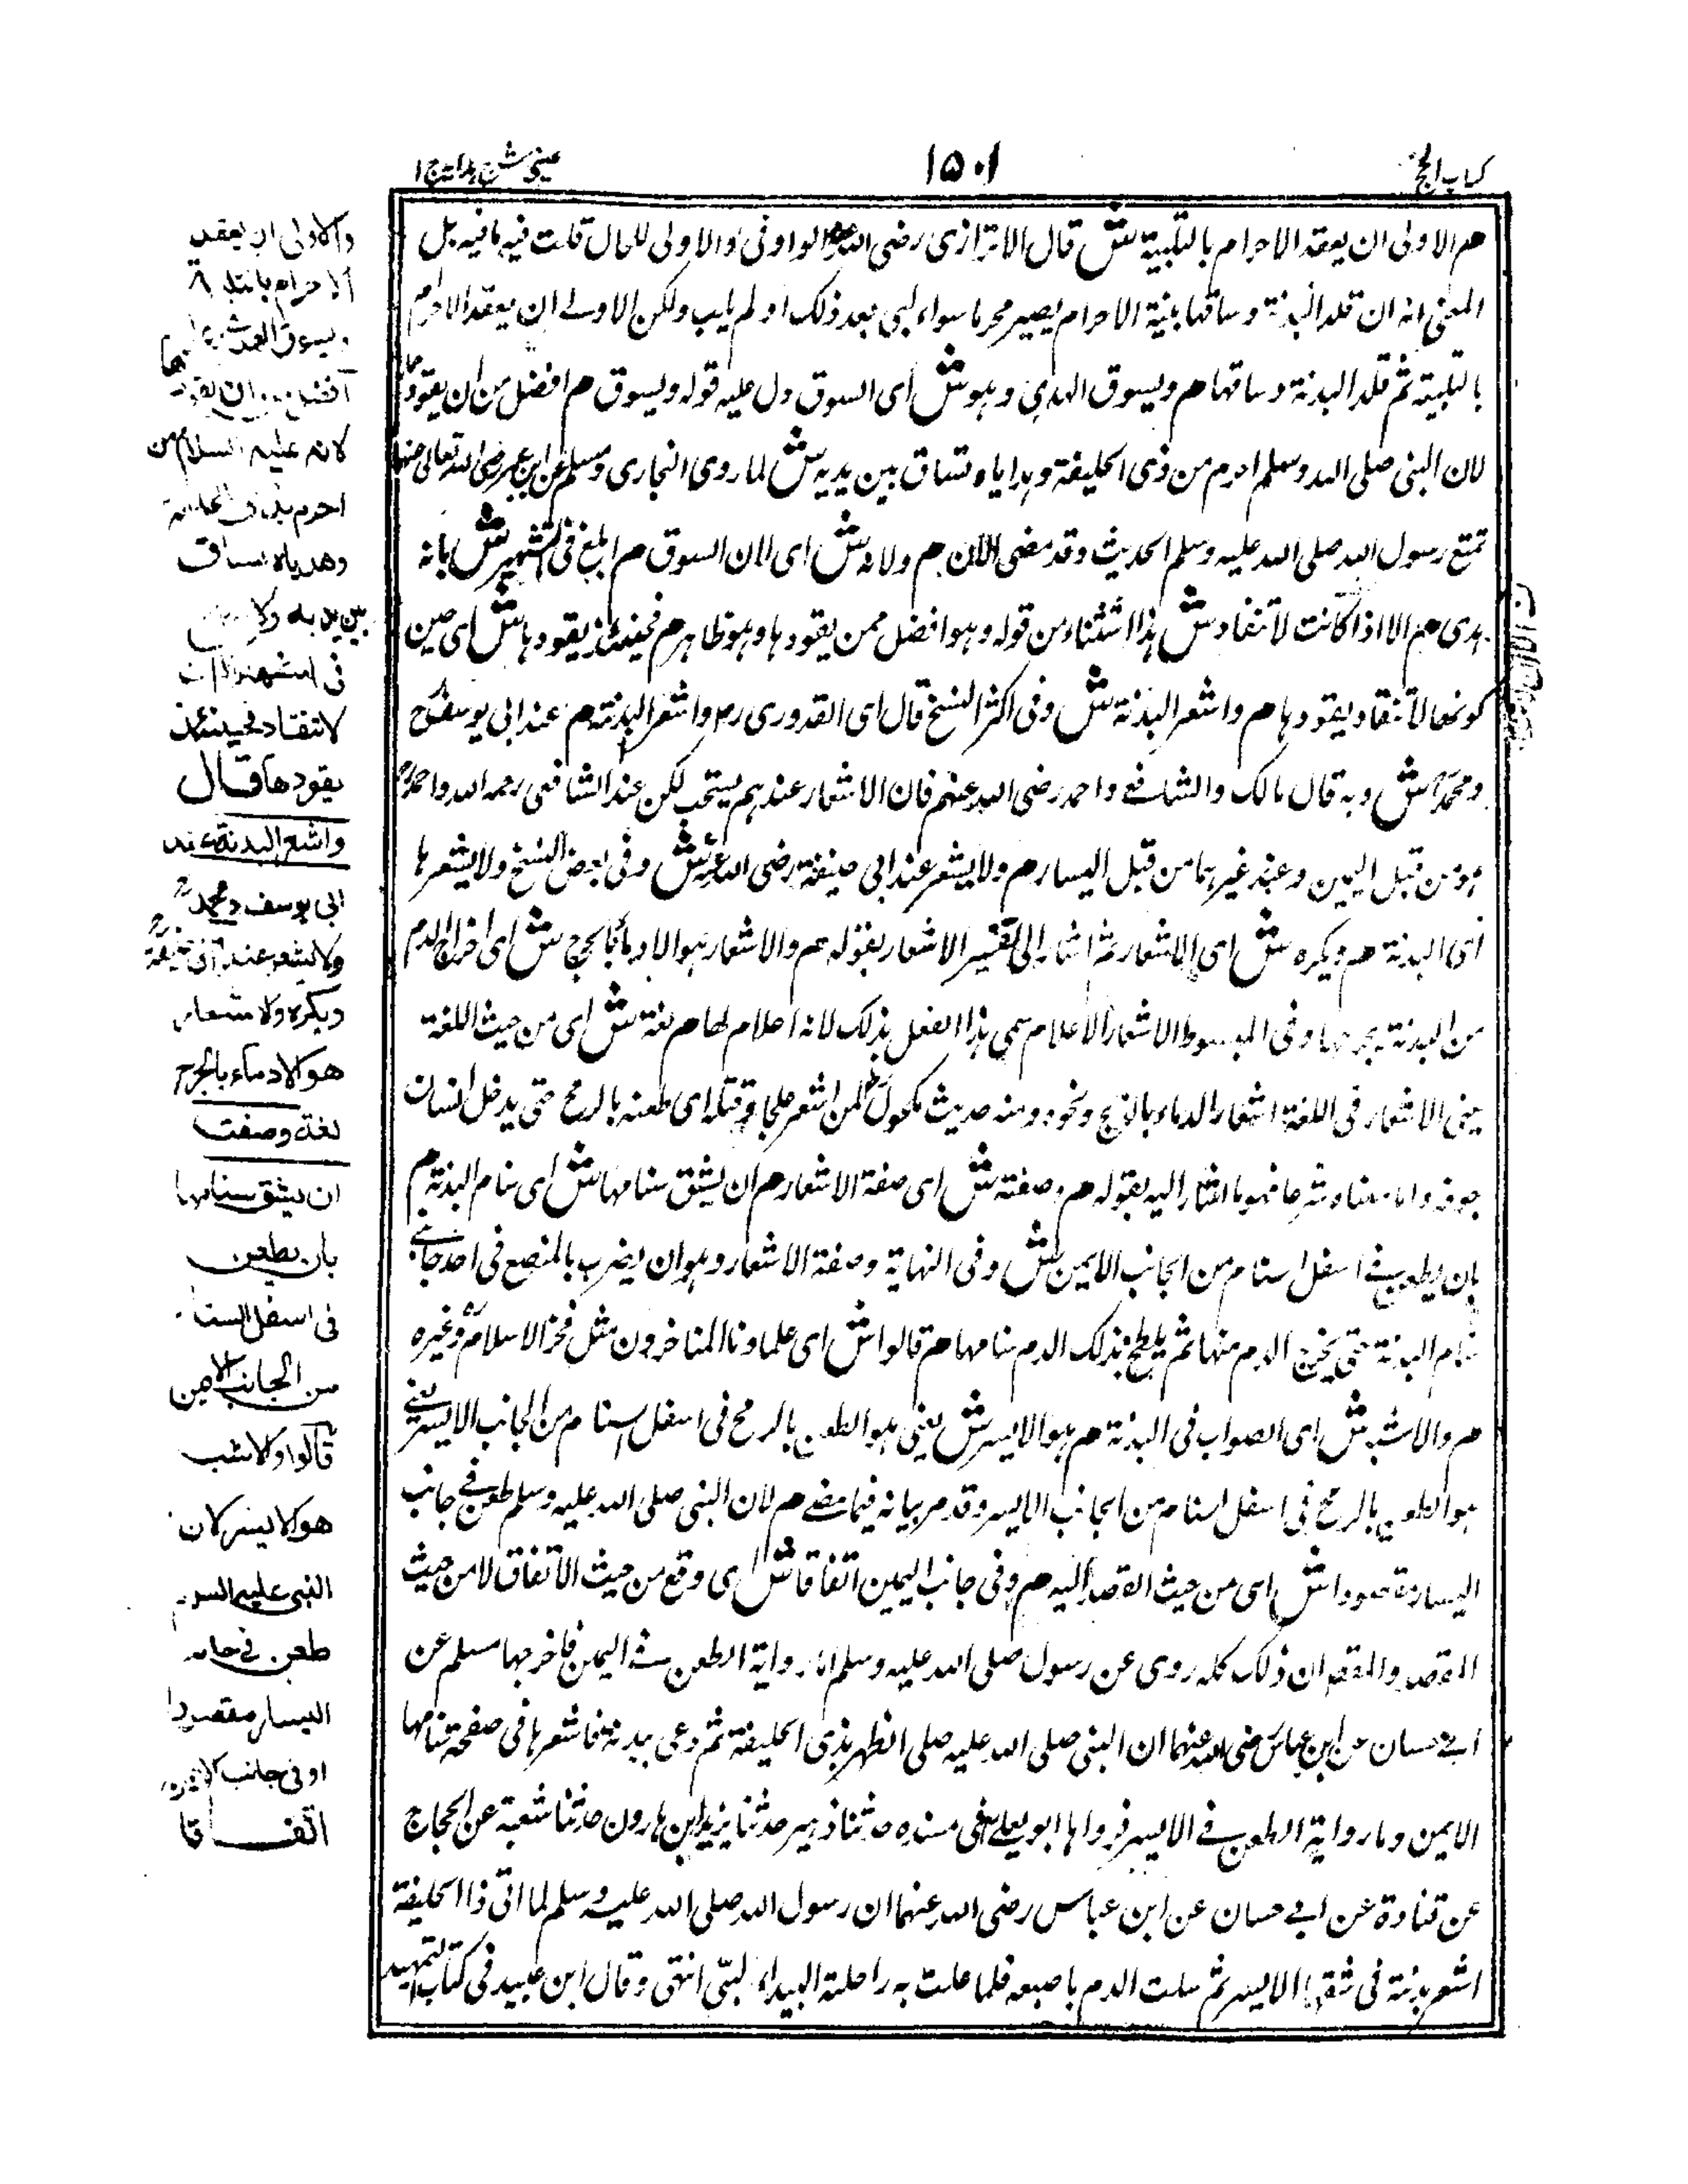 كتاب الحج
١٥٠١
عينى شرح هداية ج ١
هم الاولى ان يعقد الاحرام بالتلبية ش قال الاترازى رضى الله عنه الواو فى والاولى للحال قلت فيه مافيه بل
المعنى انه ان قلد البدنة وساقها بنية الاحرام يصير محرما سواء لبى بعد ذلك او لم يلب ولكن الاولى ان يعقد الاحرام
بالتلبية ثم قلد البدنة وساقها هم ويسوق الهدى وهو ش اى السوق دل عليه قوله ويسوق هم افضل من ان يقودها
لان النبى صلى الله وسلم احرم من ذى الحليفة وهداياه تساق بين يديه ش لما روى البخارى ومسلم عن ابن عمر رضى الله تعالى عنهما
تمتع رسول الله صلى الله عليه وسلم الحديث وقد مضى الآن هم ولانه ش اى لان السوق هم ابلغ فى التشهير ش بانه
هدى هم الا اذا كانت لا تنقاد ش هذا استثناء من قوله وهو افضل ممن يقودها وهو ظاهر هم فحينئذ يقودها ش اى حين
كونها لا تنقاد يقودها هم واشعر البدنة ش وفى اكثر النسخ قال اى القدورى رح واشعر البدنة هم عند ابى يوسف رح
ومحمد رح ش وبه قال مالك والشافعى واحمد رضى الله عنهم فان الاشعار عندهم يستحب لكن عند الشافعى رحمه الله واحمد رح
هو من قبل اليمين وعند غيرهما من قبل اليسار هم ولا يشعر عند ابى حنيفة رضى الله عنه ش وفى بعض النسخ ولا يشعرها
اى البدنة هم ويكره ش اى الاشعار ثم اشار الى تفسير الاشعار بقوله هم والاشعار هو الادماء بالجرح ش اى اخراج الدم
من البدنة بجرحها وفى المبسوط الاشعار الاعلام سمى هذا الفعل بذلك لانه اعلام لها هم لغة ش اى من حيث اللغة
يعنى الاشعار فى اللغة اشعار الدماء بالزج ونحوه ومنه حديث مكحول رح لمن اشعر علجا وقتله اى طعنه بالرمح حتى يدخل لسنان
جوفه واما معناه شرعا فهو ما اشار اليه بقوله هم وصفته ش اى صفة الاشعار هم ان يشق سنامها ش اى سنام البدنة هم
بان يطعن فى اسفل السنام من الجانب الايمن ش وفى النهاية وصفة الاشعار وهو ان يضرب بالمبضع فى احد جانبى
سنام البدنة حتى يخرج الدم منها ثم يلطخ بذلك الدم سنامها هم قالوا ش اى علماونا المتاخرون مثل فخر الاسلام رح وغيره
هم والاشبه ش اى الصواب فى البدنة هم هو الايسر ش يعنى هو الطعن بالرمح فى اسفل السنام من الجانب الايسر يعنى
هو الطعن بالرمح فى اسفل السنام من الجانب الايسر وقد مر بيانه فيما مضى هم لان النبى صلى الله عليه وسلم طعن فى جانب
اليسار مقصودا ش اى من حيث القصد اليه هم وفى جانب اليمين اتفاقا ش اى وقع من حيث الاتفاق لا من حيث
القصد والمقصد ان ذلك كله روى عن رسول صلى الله عليه وسلم اما رواية الطعن فى اليمين فاخرجها مسلم عن
ابى حسان عن ابن عباس رضى الله عنهما ان النبى صلى الله عليه صلى الظهر بذى الحليفة ثم دعى ببدنة فاشعرها فى صفحة سنامها
الايمن وما رواية الطعن فى الايسر فرواها ابو يعلى فى مسنده حدثنا زهير حدثنا يزيد ابن هارون حدثنا شعبة عن الحجاج
عن قتادة عن ابى حسان عن ابن عباس رضى الله عنهما ان رسول الله صلى الله عليه وسلم لما اتى ذا الحليفة
اشعر بدنة فى شقها الايسر ثم سلت الدم باصبعه فلما علت به راحلته البيداء لبى انتهى وقال ابن عبيد فى كتاب التمهيد
والاولى ان يعقد
الاحرام بالتلبية
ويسوق الهدى
افضل من ان يقودها
لانه عليه السلام
احرم بذى الحليفة
وهداياه تساق
بين يديه ولانه
فى التشهير الا ان
لا تنقاد فحينئذ
يقودها قال
واشعر البدنة عند
ابى يوسف ومحمد رح
ولا يشعر عند ابى حنيفة رح
ويكره والاشعار
هو الادماء بالجرح
لغة وصفته
ان يشق سنامها
بان يطعن
فى اسفل السنام
من الجانب الايمن
قالوا والاشبه
هو الايسر لان
النبى عليه السلام
طعن فى جانب
اليسار مقصودا
او فى جانب الايمن
اتفاقا